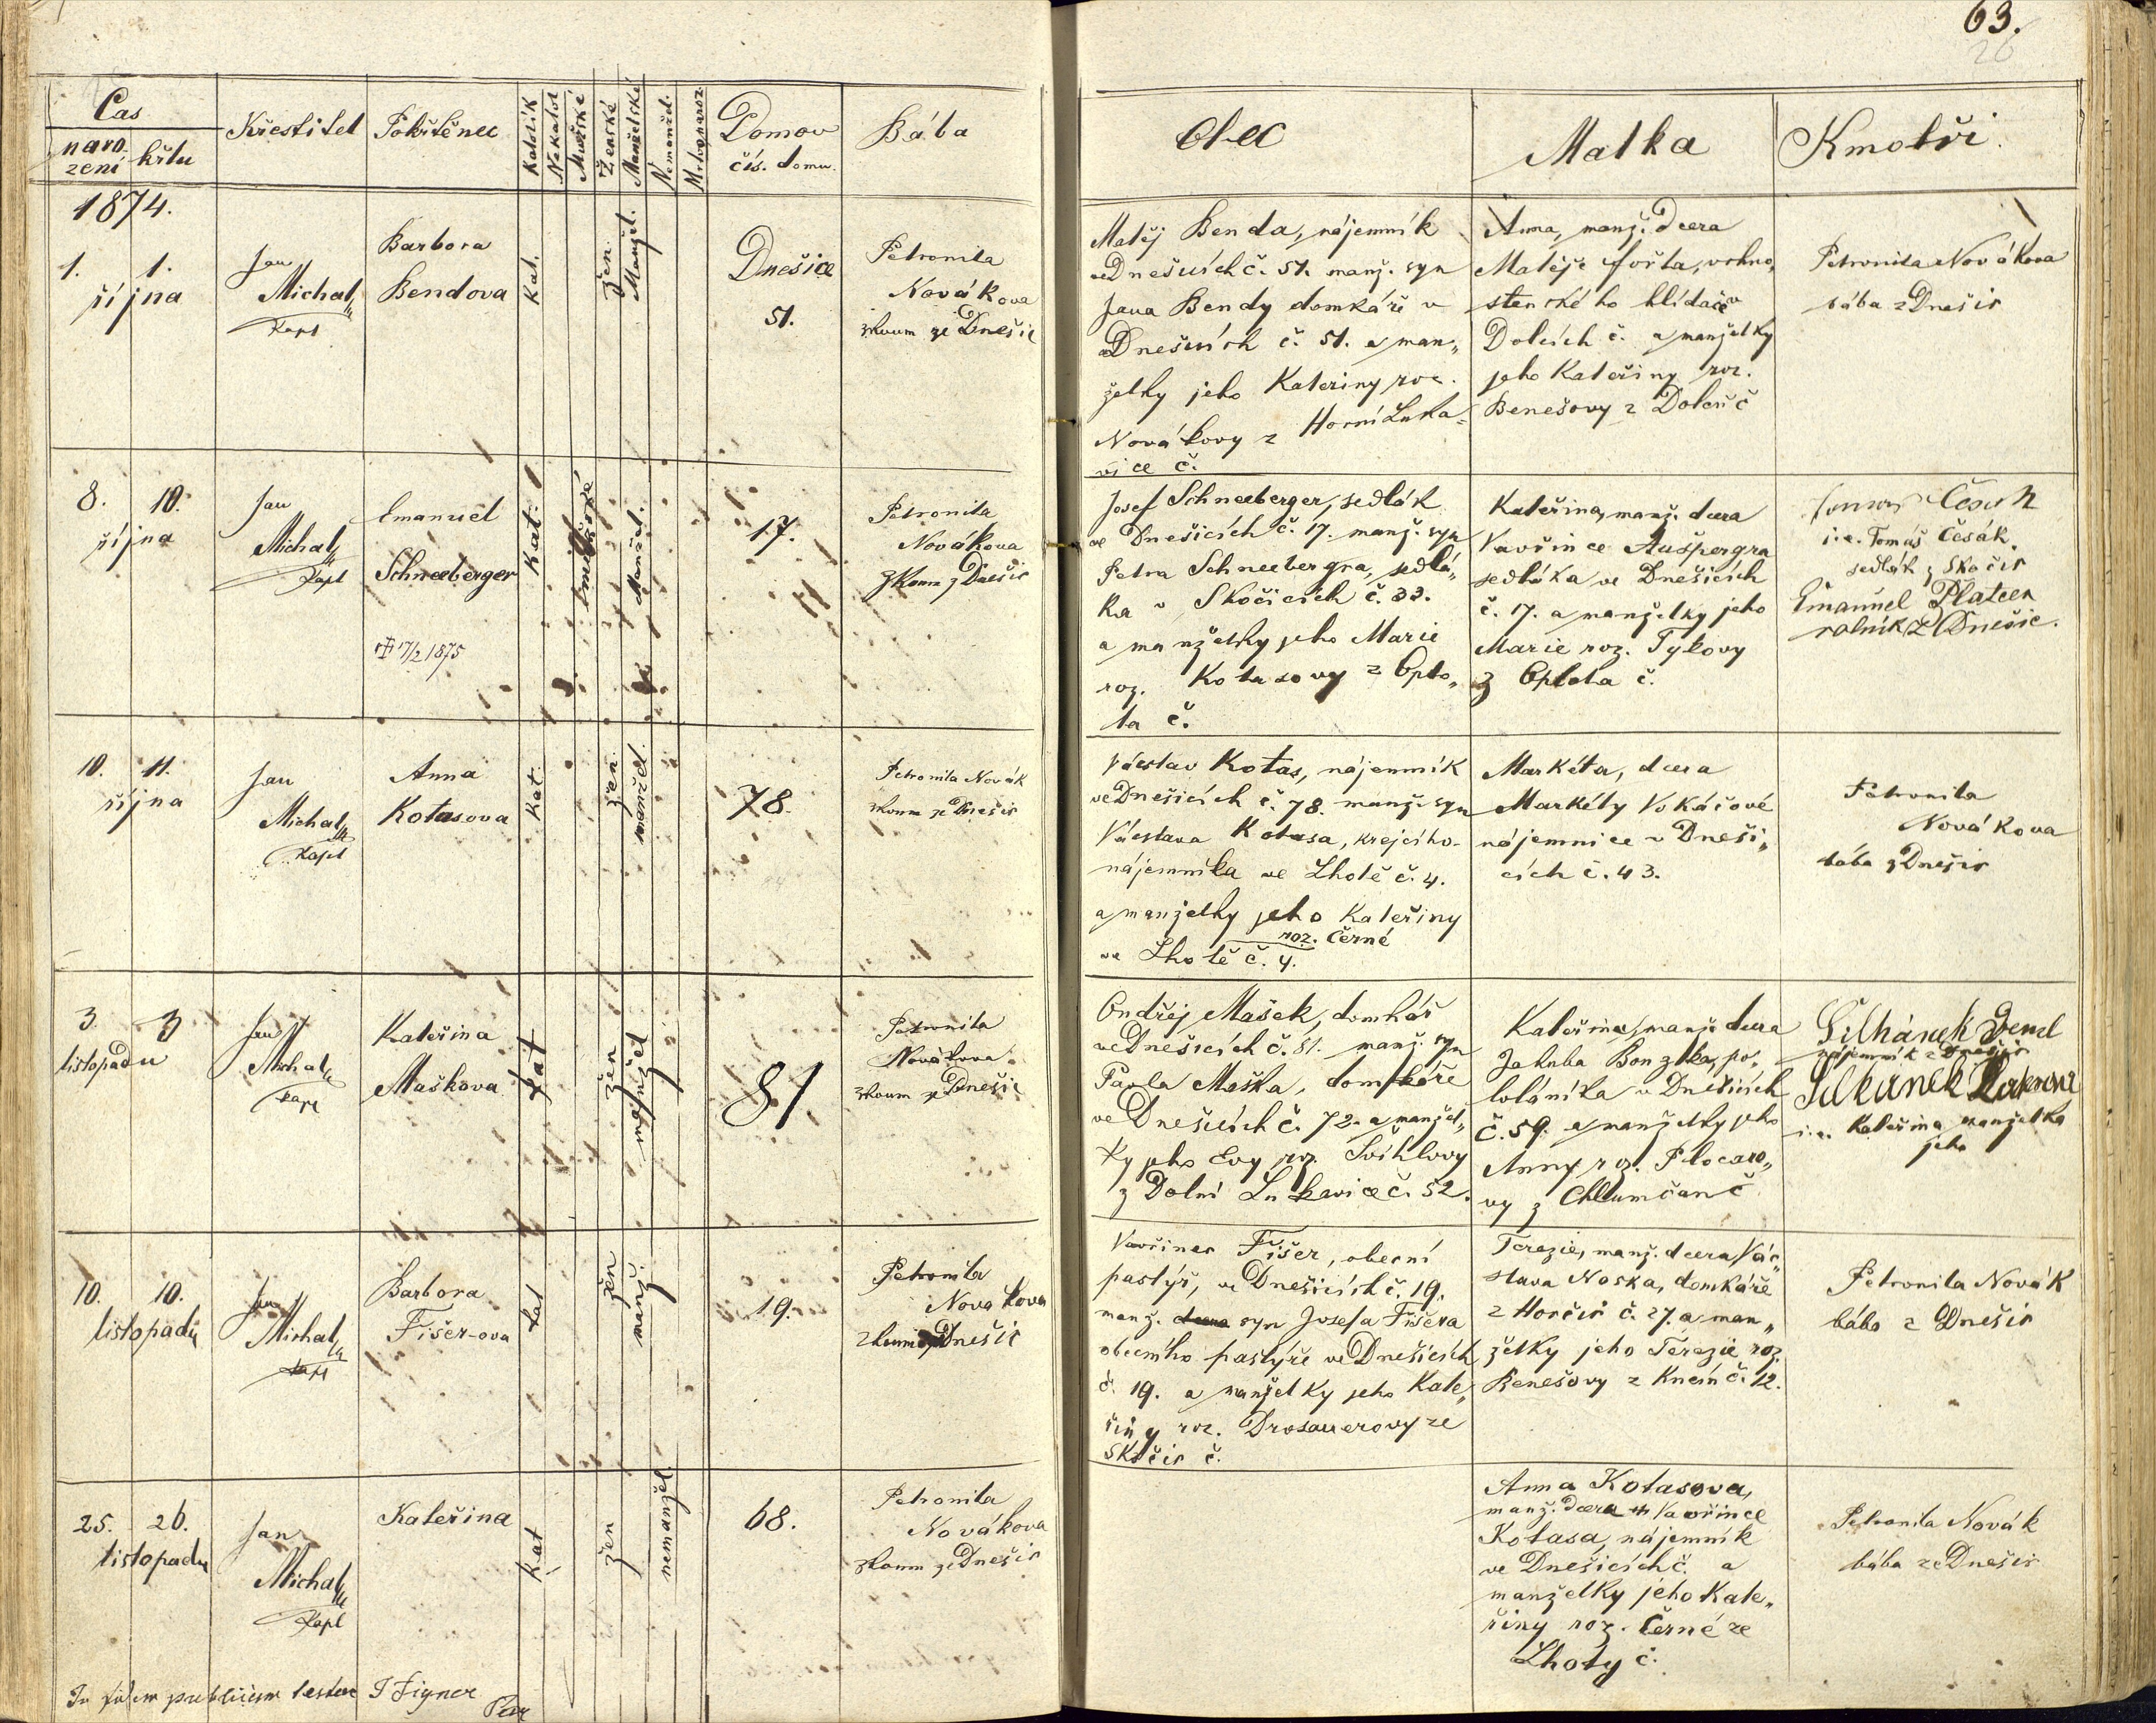 63.
26
Čas
naro-
zení
křtu
Křestitel
Pokřtěnec
Katolík
Nekatol
Mužské
Ženské
Manželské
Nemanžel.
Domov
čís. domu.
Bába
Otec
Matka
Kmotři.
1874.
1. 1.
října
Jan
Michal
Kapl
Barbora
Bendova
Kat.
žen.
Manžel.
Dnešice
51.
Petronila
Novákova
zkoum ze Dnešic
Matěj Benda, nájemník
ve Dnešicích č. 51. manž. syn
Jana Bendy domkáře v
Dnešicích č. 51. a man„
želky jeho Kateriny roz.
Novákovy z Horní Luka„
vice č.
Anna, manž. dcera
Matěje Fořta, vrchno„
stenského hlídače v
Dolcích č. a manželky
jeho Kateřiny roz.
Benešovy z Dolců č
Petronila Novákova
bába z Dnešic
8. 10.
října
Jan
Michal
Kapl
Emanuel
Schneeberger
17/2 1875
Kat.
Manžel.
17.
Petronila
Novákova
zkoum z Dnešic
Josef Schneeberger, sedlák
ve Dnešicích č. 17. manž. syn
Petra Schneebergra, sedlá„
ka v Skočicích č. 33.
a manželky jeho Marie
roz. Kotasovy z Oplo„
ta č.
Kateřina, manž. dcera
Vavřince Aušpergra
sedláka ve Dnešicích
č. 17. a manželky jeho
Marie roz. Tylovy
z Oplota č.
i.e. Tomáš Česák,
sedlák z Skočic
Emanuel Plateen
rolník z Dnešic.
10. 11.
října
Jan
Michal
Kapl
Anna
Kotasova
Kat.
žen.
manžel.
78.
Petronila Novák
zkoum ze Dnešic
Václav Kotas, nájemník
ve Dnešicích č. 78. manž. syn
Václava Kotasa, krejcího-
nájemníka ve Lhotě č. 4.
a manželky jeho Kateřiny
roz. Černé
ve Lhotě č. 4.
Markéta, dcera
Markéty Vokáčové
nájemnice v Dneši„
cích č. 43.
Petronila
Novákova
bába z Dnešic
3. 3
listopadu
Jan
Michal
Kapl
Kateřina
Maškova
kat
žen
manžel
81
Petronila
Novákova
zkoum ze Dnešic
Ondřej Mašek, domkář
ve Dnešicích č. 81. manž. syn
Pavla Maška, domkáře
ve Dnešicích č. 72. a manžel„
ky jeho Evy roz. Švihlovy
z Dolní Lukavice č. 52.
Kateřina, manž. dcera
Jakuba Bonzla, po„
loláníka v Dnešicích
č. 59. a manželky jeho
Anny roz. Plocaro„
vy z Chlumčan č
Silhánek
nájemník z Dnešic
Silhánek
i.e. Kateřina manželka
jeho
10. 10.
listopadu
Jan
Michal
Kapl
Barbora
Fišer-ova
kat
žen
manž.
19.
Petronila
Novakova
zkoum ze Dnešic
Vavřinec Fišer, obecní
pastýř, ve Dnešicích č. 19.
manž. dcera syn Josefa Fišera
obecního pastýře ve Dnešicích
č. 19. a manželky jeho Kate„
řiny roz. Drosauerovy ze
Skočic č.
Terezie, manž. dcera Vá„
clava Noska, domkáře
z Horčic č. 27. a man„
želky jeho Terezie roz.
Benešovy z Knčín č. 12.
Petronila Novák
bába z Dnešic
25. 26.
listopadu
Jan
Michal
Kapl
Kateřina
kat
žen
nemanžel.
68.
Petronila
Novákova
zkoum ze Dnešic
Anna Kotasova,
manž. dcera Vavřince
Kotasa, nájemník
ve Dnešicích č. a
manželky jeho Kate„
řiny roz. Černé ze
Lhoty č.
Petronila Novák
bába ze Dnešic
In fidem publicam testor J Figner